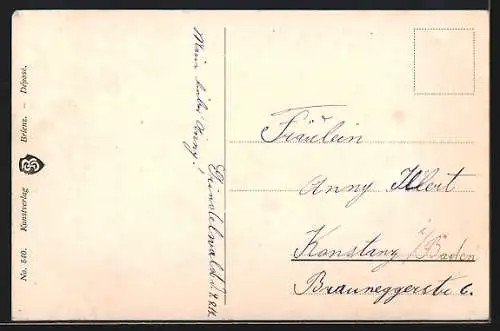 No. 540. Kunstverlag Brienz. – Déposé.
Mein lieber Anny!
Fräulein
Anny Illert
Konstanz i/Baden
Brauneggerstr. 6.